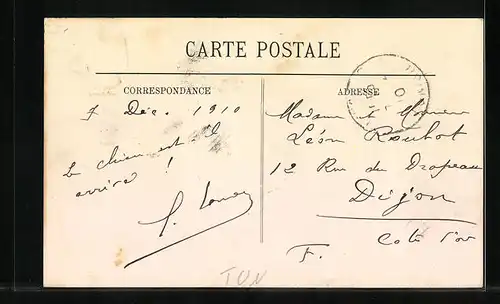 CARTE POSTALE
CORRESPONDANCE
ADRESSE
7 Déc. 1910
Le chien est-il
arrivé !
Madame et Monsieur
Léon Rouhot
12 Rue du Drapeau
Dijon
Cote d'or
F.
TUN